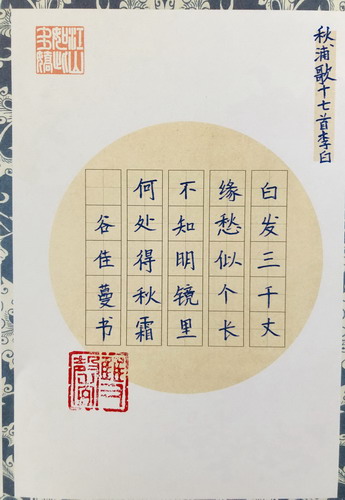 秋浦歌十七首李白
白发三千丈
缘愁似个长
不知明镜里
何处得秋霜
谷佳蔓书
江山如此多娇